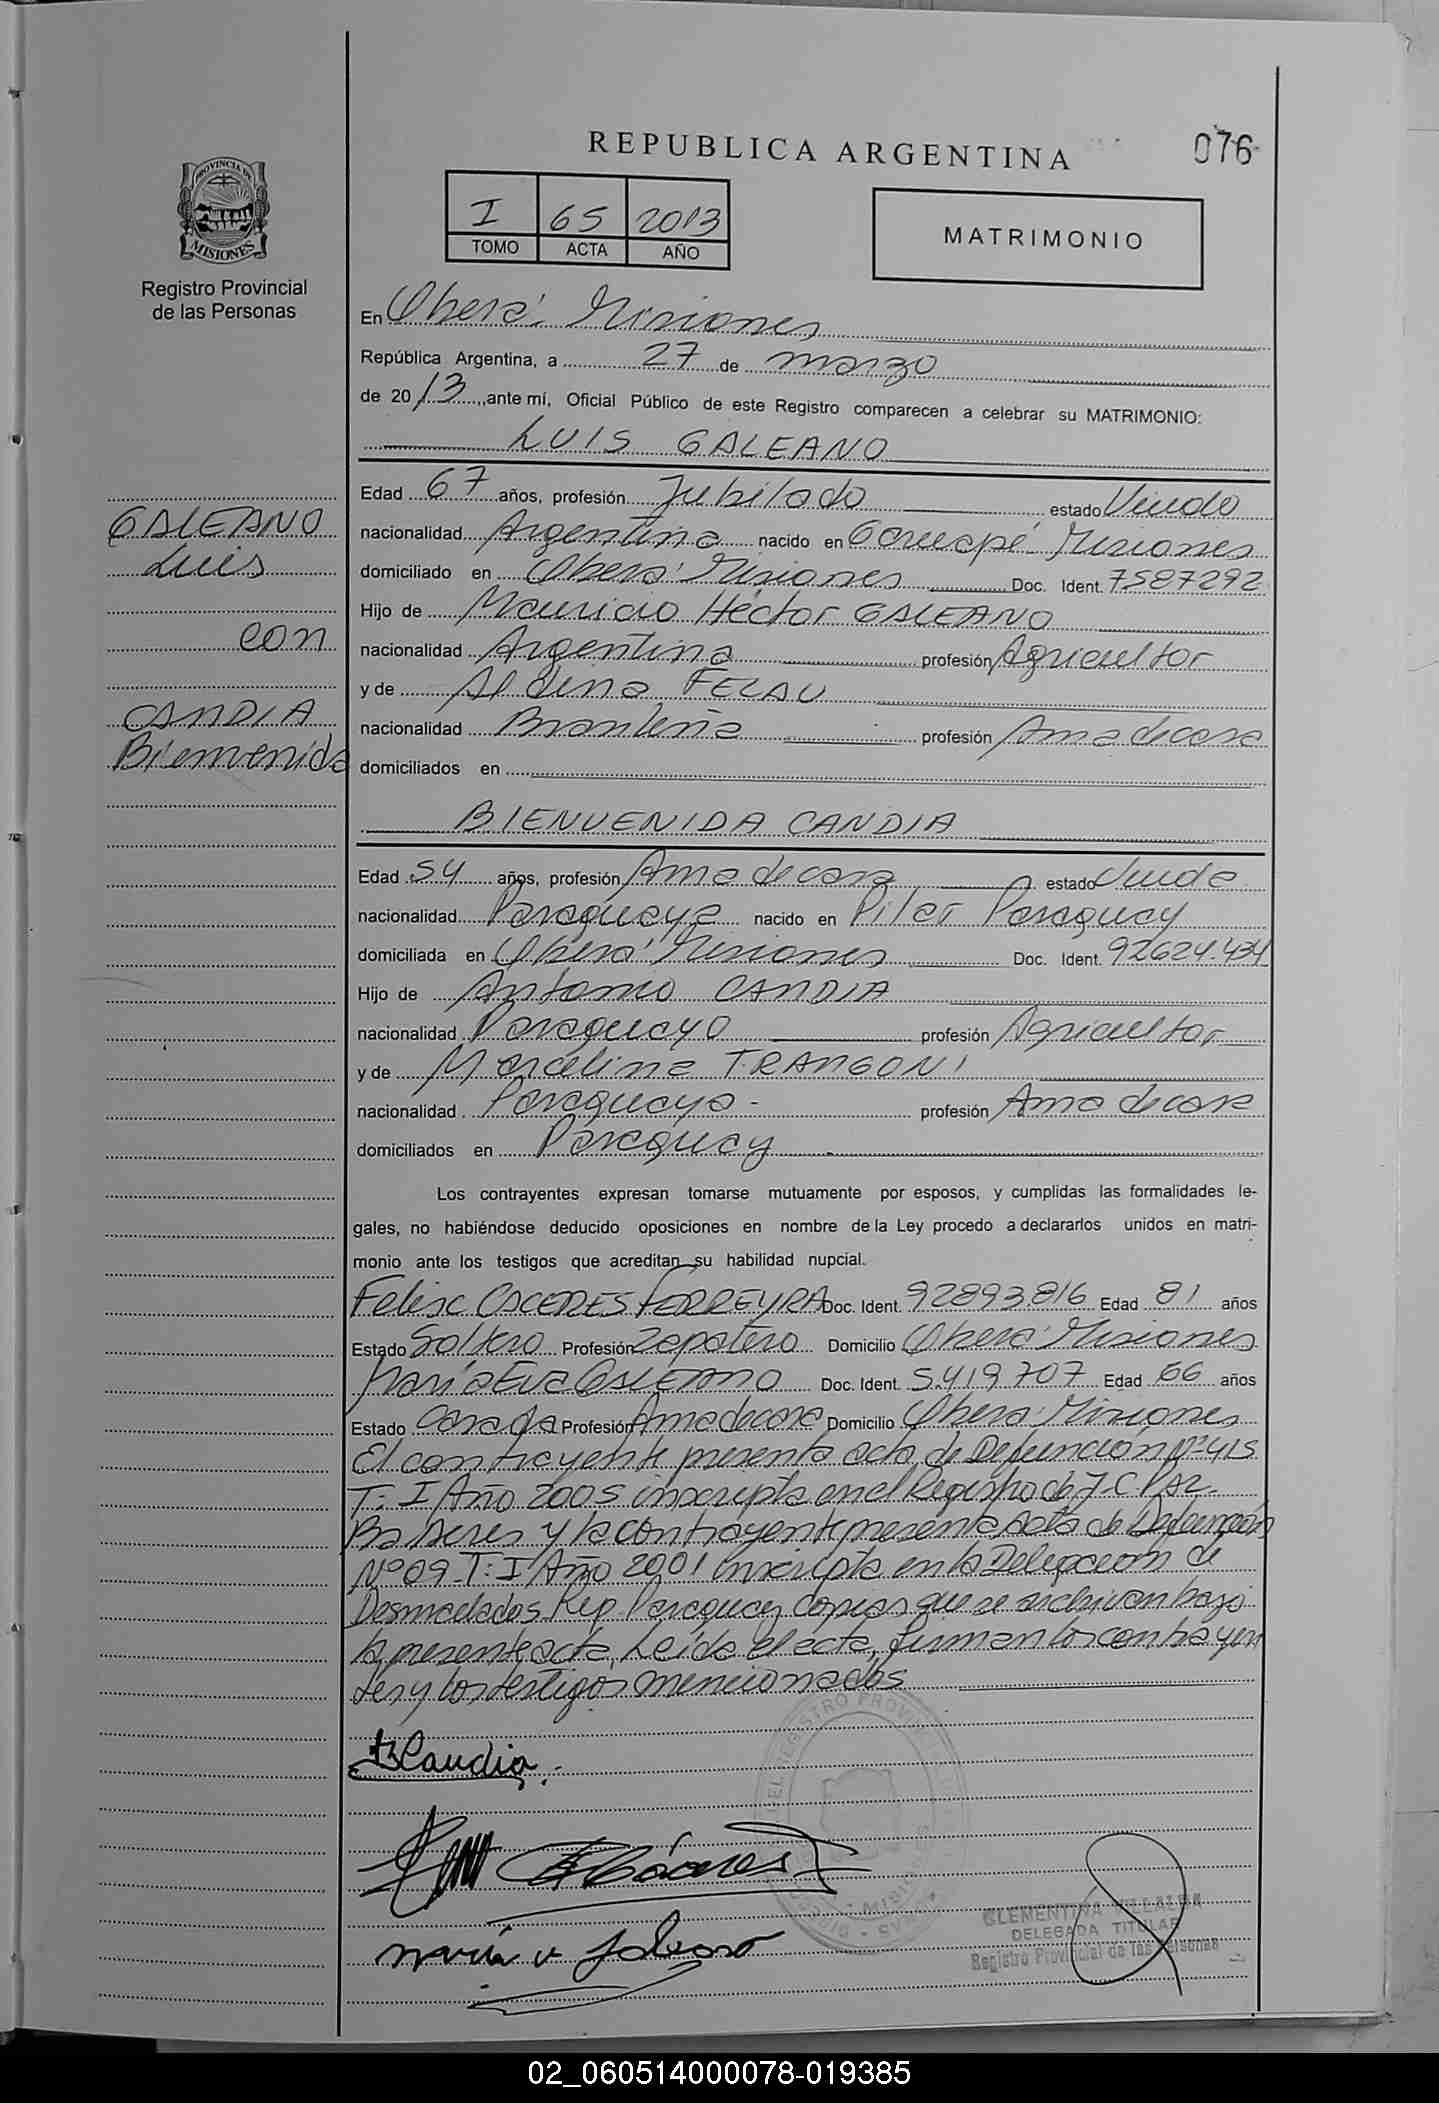 REPUBLICA ARGENTINA
076
PROVINCIA DE
MISIONES
Registro Provincial
de las Personas
I 65 2013
TOMO ACTA AÑO
MATRIMONIO
En Oberá Misiones
República Argentina, a 27 de marzo
de 2013, ante mí, Oficial Público de este Registro comparecen a celebrar su MATRIMONIO:
LUIS GALEANO
GALEANO
Luis
con
CANDIA
Bienvenida
Edad 67 años, profesión Jubilado estado Viudo
nacionalidad Argentina nacido en Garuapé Misiones
domiciliado en Oberá Misiones Doc. Ident. 7587292
Hijo de Mauricio Héctor GALEANO
nacionalidad Argentina profesión Agricultor
y de
nacionalidad Brasileña profesión Ama de casa
domiciliados en
BIENVENIDA CANDIA
Edad 54 años, profesión Ama de casa estado Viuda
nacionalidad Paraguaya nacido en Pilar Paraguay
domiciliada en Oberá Misiones Doc. Ident. 92624.434
Hijo de Antonio CANDIA
nacionalidad Paraguayo profesión Agricultor
y de Marcelina TRANGONI
nacionalidad Paraguaya - profesión Ama de casa
domiciliados en Paraguay
Los contrayentes expresan tomarse mutuamente por esposos, y cumplidas las formalidades le-
gales, no habiéndose deducido oposiciones en nombre de la Ley procedo a declararlos unidos en matri-
monio ante los testigos que acreditan su habilidad nupcial.
CACERES FERREYRA Doc. Ident. 92893816 Edad 81 años
Estado Soltero Profesión Zapatero Domicilio Oberá Misiones
María Eva GALEANO Doc. Ident. 5.419.707 Edad 66 años
Estado Casada Profesión Ama de casa Domicilio Oberá Misiones
El contrayente presenta acta de Defunción Nº 415
T: I Año 2005 inscripta en el Registro de J.C. PAZ
Bs Aires y la contrayente presenta Acta de Defunción
Nº 09 T: I Año 2001 inscripta en la Delegación de
Desmochados Rep. Paraguay copias que se archivan bajo
la presente acta. Leída el acta, firman los contrayen
tes y los testigos mencionados
B Candia
CLEMENTINA VILLALBA
DELEGADA TITULAR
Registro Provincial de las Personas
02_060514000078-019385